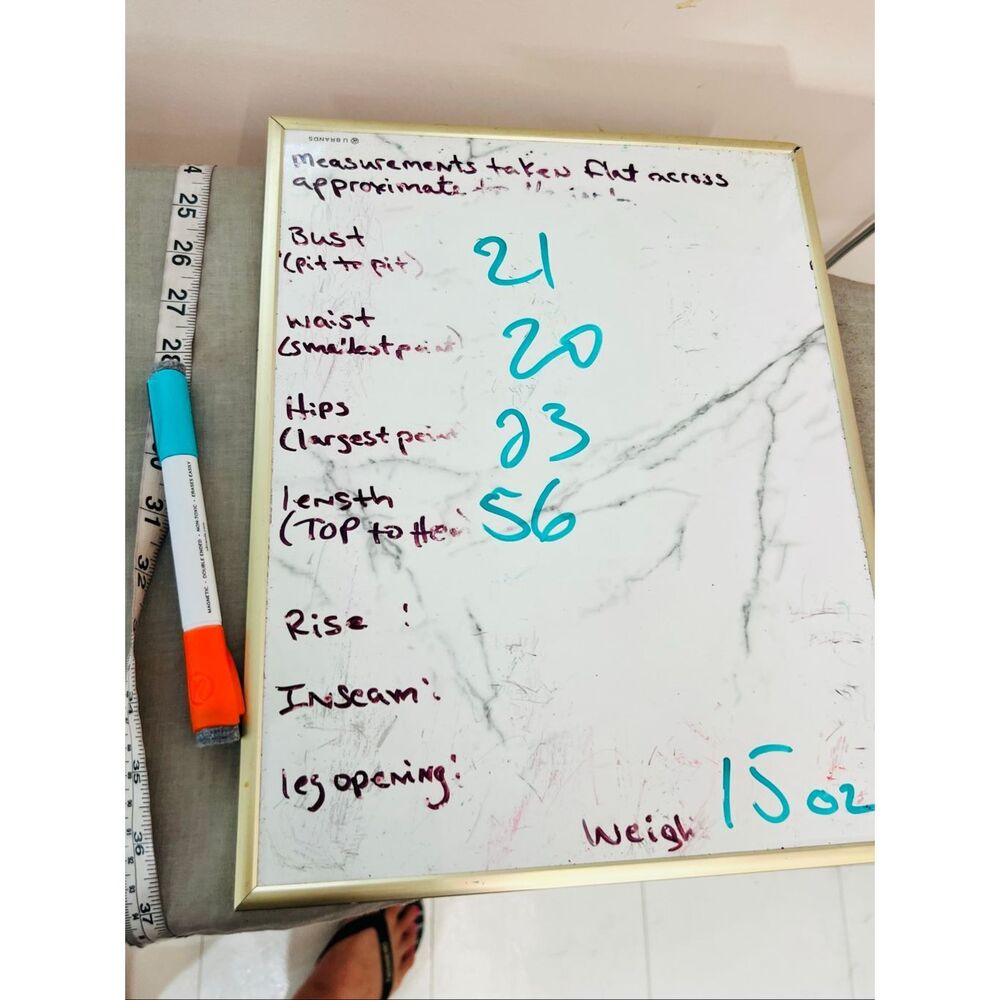 U BRANDS
Measurements taken flat across
approximate
Bust 21
(pit to pit)
waist 20
(smallest point)
Hips 23
(largest point
length 56
(TOP to Hem
Rise :
Inseam:
leg opening:
Weigh 15 oz
MAGNETIC • DOUBLE ENDED • NON-TOXIC • ERASES EASILY
25
26
27
28
31
32
35
36
37